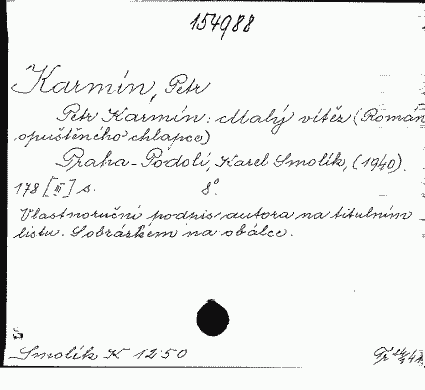 154988
Karmín, Petr
Petr Karmín: Malý vítěz (Román
opuštěného chlapce)
Praha-Podolí, Karel Smolík, (1940).
178 [II] s. 8°.
Vlastnoruční podpis autora na titulním
listu. S obrázkem na obálce.
Smolík K 12.50